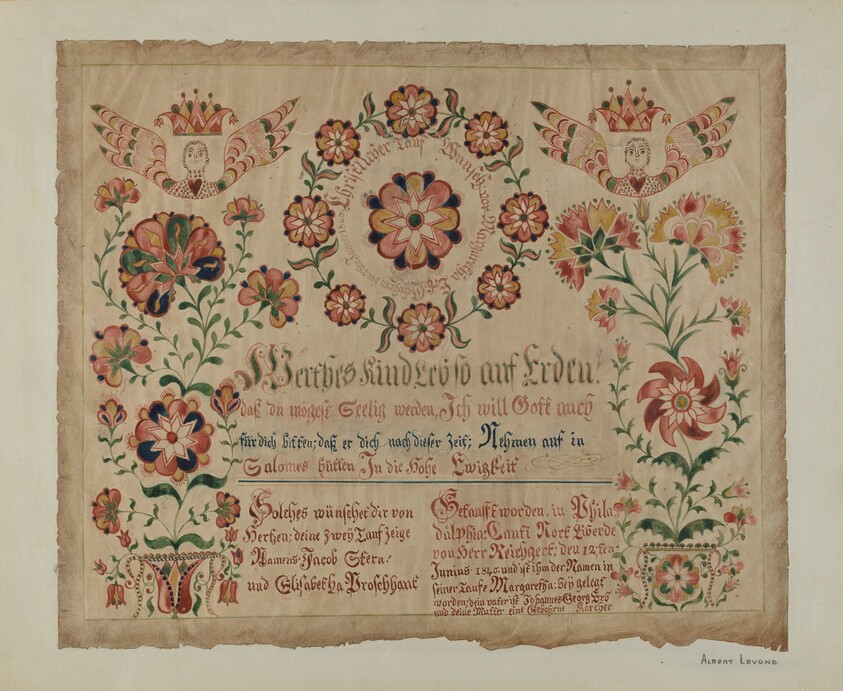 Christlicher Tauf Wunsch vor Margaretha
Werthes Kind Leb so auf Erden!
daß du mögest Seelig werden, Ich will Gott auch
für dich bitten; daß er dich nach dieser Zeit; Nehmen auf in
Salomes hütten In die Hohe Ewigkeit
Solches wünschet dir von
Hertzen; deine zwey Tauf Zeige
Namens: Jacob Stern:
und Elisabetha Proschhant
Getauft worden, in Phila
dälphia: Caunti Nort Liberde
von Herr Reichgert; den 12ten
Junius 1840 und ist ihm der Namen in
seiner Taufe Margaretha: bey gelegt
worden; dein vater ist Johannes Georg
und deine Mutter eine Gebohrne Karcher
ALBERT LEVONE